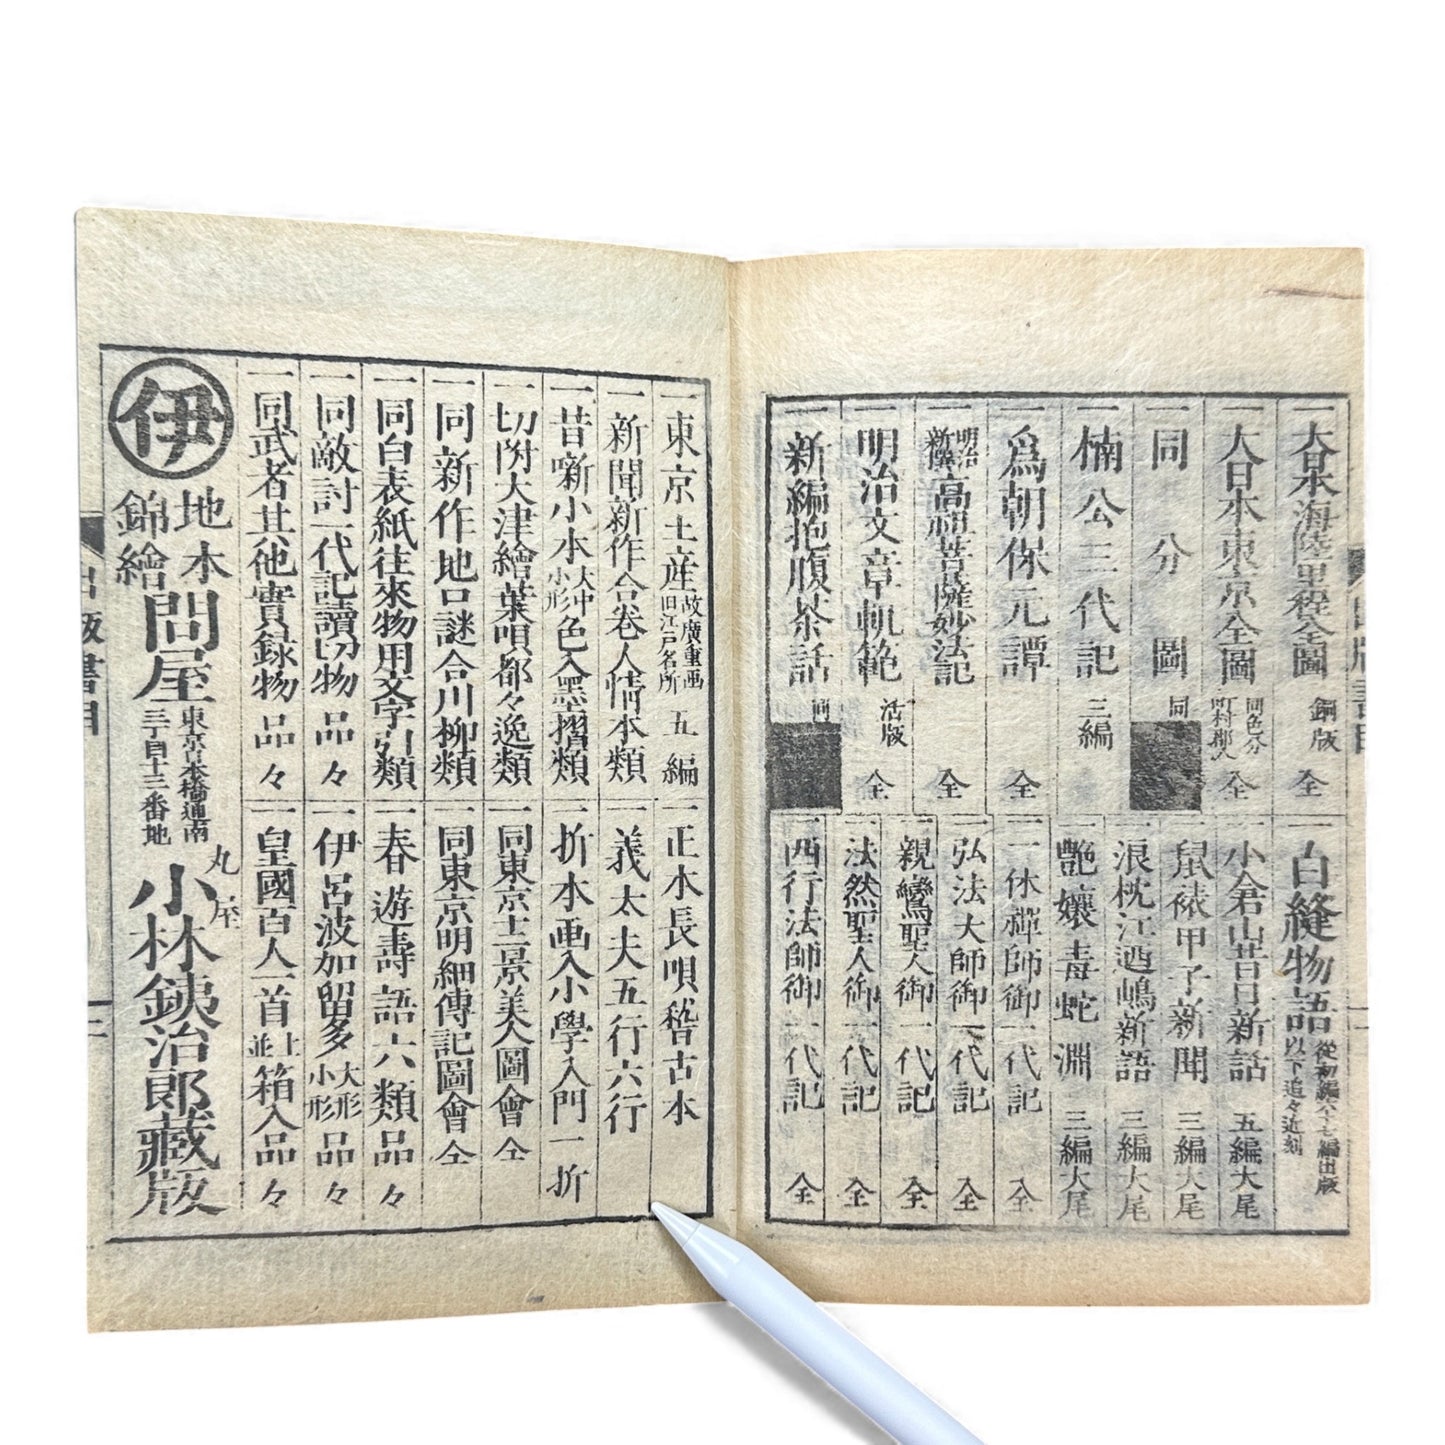 一大日本海陸里程全圖 銅版 全
一大日本東京全圖 同色分 町村郷入 全
一同分圖 同
一楠公三代記 三編
一爲朝保元譚 全
一明治新撰高祖菩薩妙法記 全
一明治文章軌範 活版 全
一新編抱腹茶話 同
一白縫物語 從初編六十七編出版 以下追々近刻
一小倉山昔日新話 五編大尾
一鼠裱甲子新聞 三編大尾
一浪枕江迺嶋新語 三編大尾
一艶孃毒蛇淵 三編大尾
一一休禪師御一代記 全
一弘法大師御一代記 全
一親鸞聖人御一代記 全
一法然聖人御一代記 全
一西行法師御一代記 全
一東京土産 故廣重画 旧江戸名所 五編
一新聞新作合巻人情本類
一昔噺小本 大中小形 色入墨摺類
一切附大津繪葉唄都々逸類
一同新作地口謎合川柳類
一同白表紙往來物用文字引類
一同敵討一代記讀切物品々
一同武者其他實録物品々
一正本長唄稽古本
一義太夫五行六行
一折本画入小學入門一折
一同東京十二景美人圖會 全
一同東京明細傳記圖會 全
一春遊壽語六類品々
一伊呂波加留多 大形 小形 品々
一皇國百人一首 並上 箱入品々
伊
地本
錦繪
問屋
東京日本橋通南
三丁目十三番地
丸屋
小林鉄治郎藏版
出版書目
二